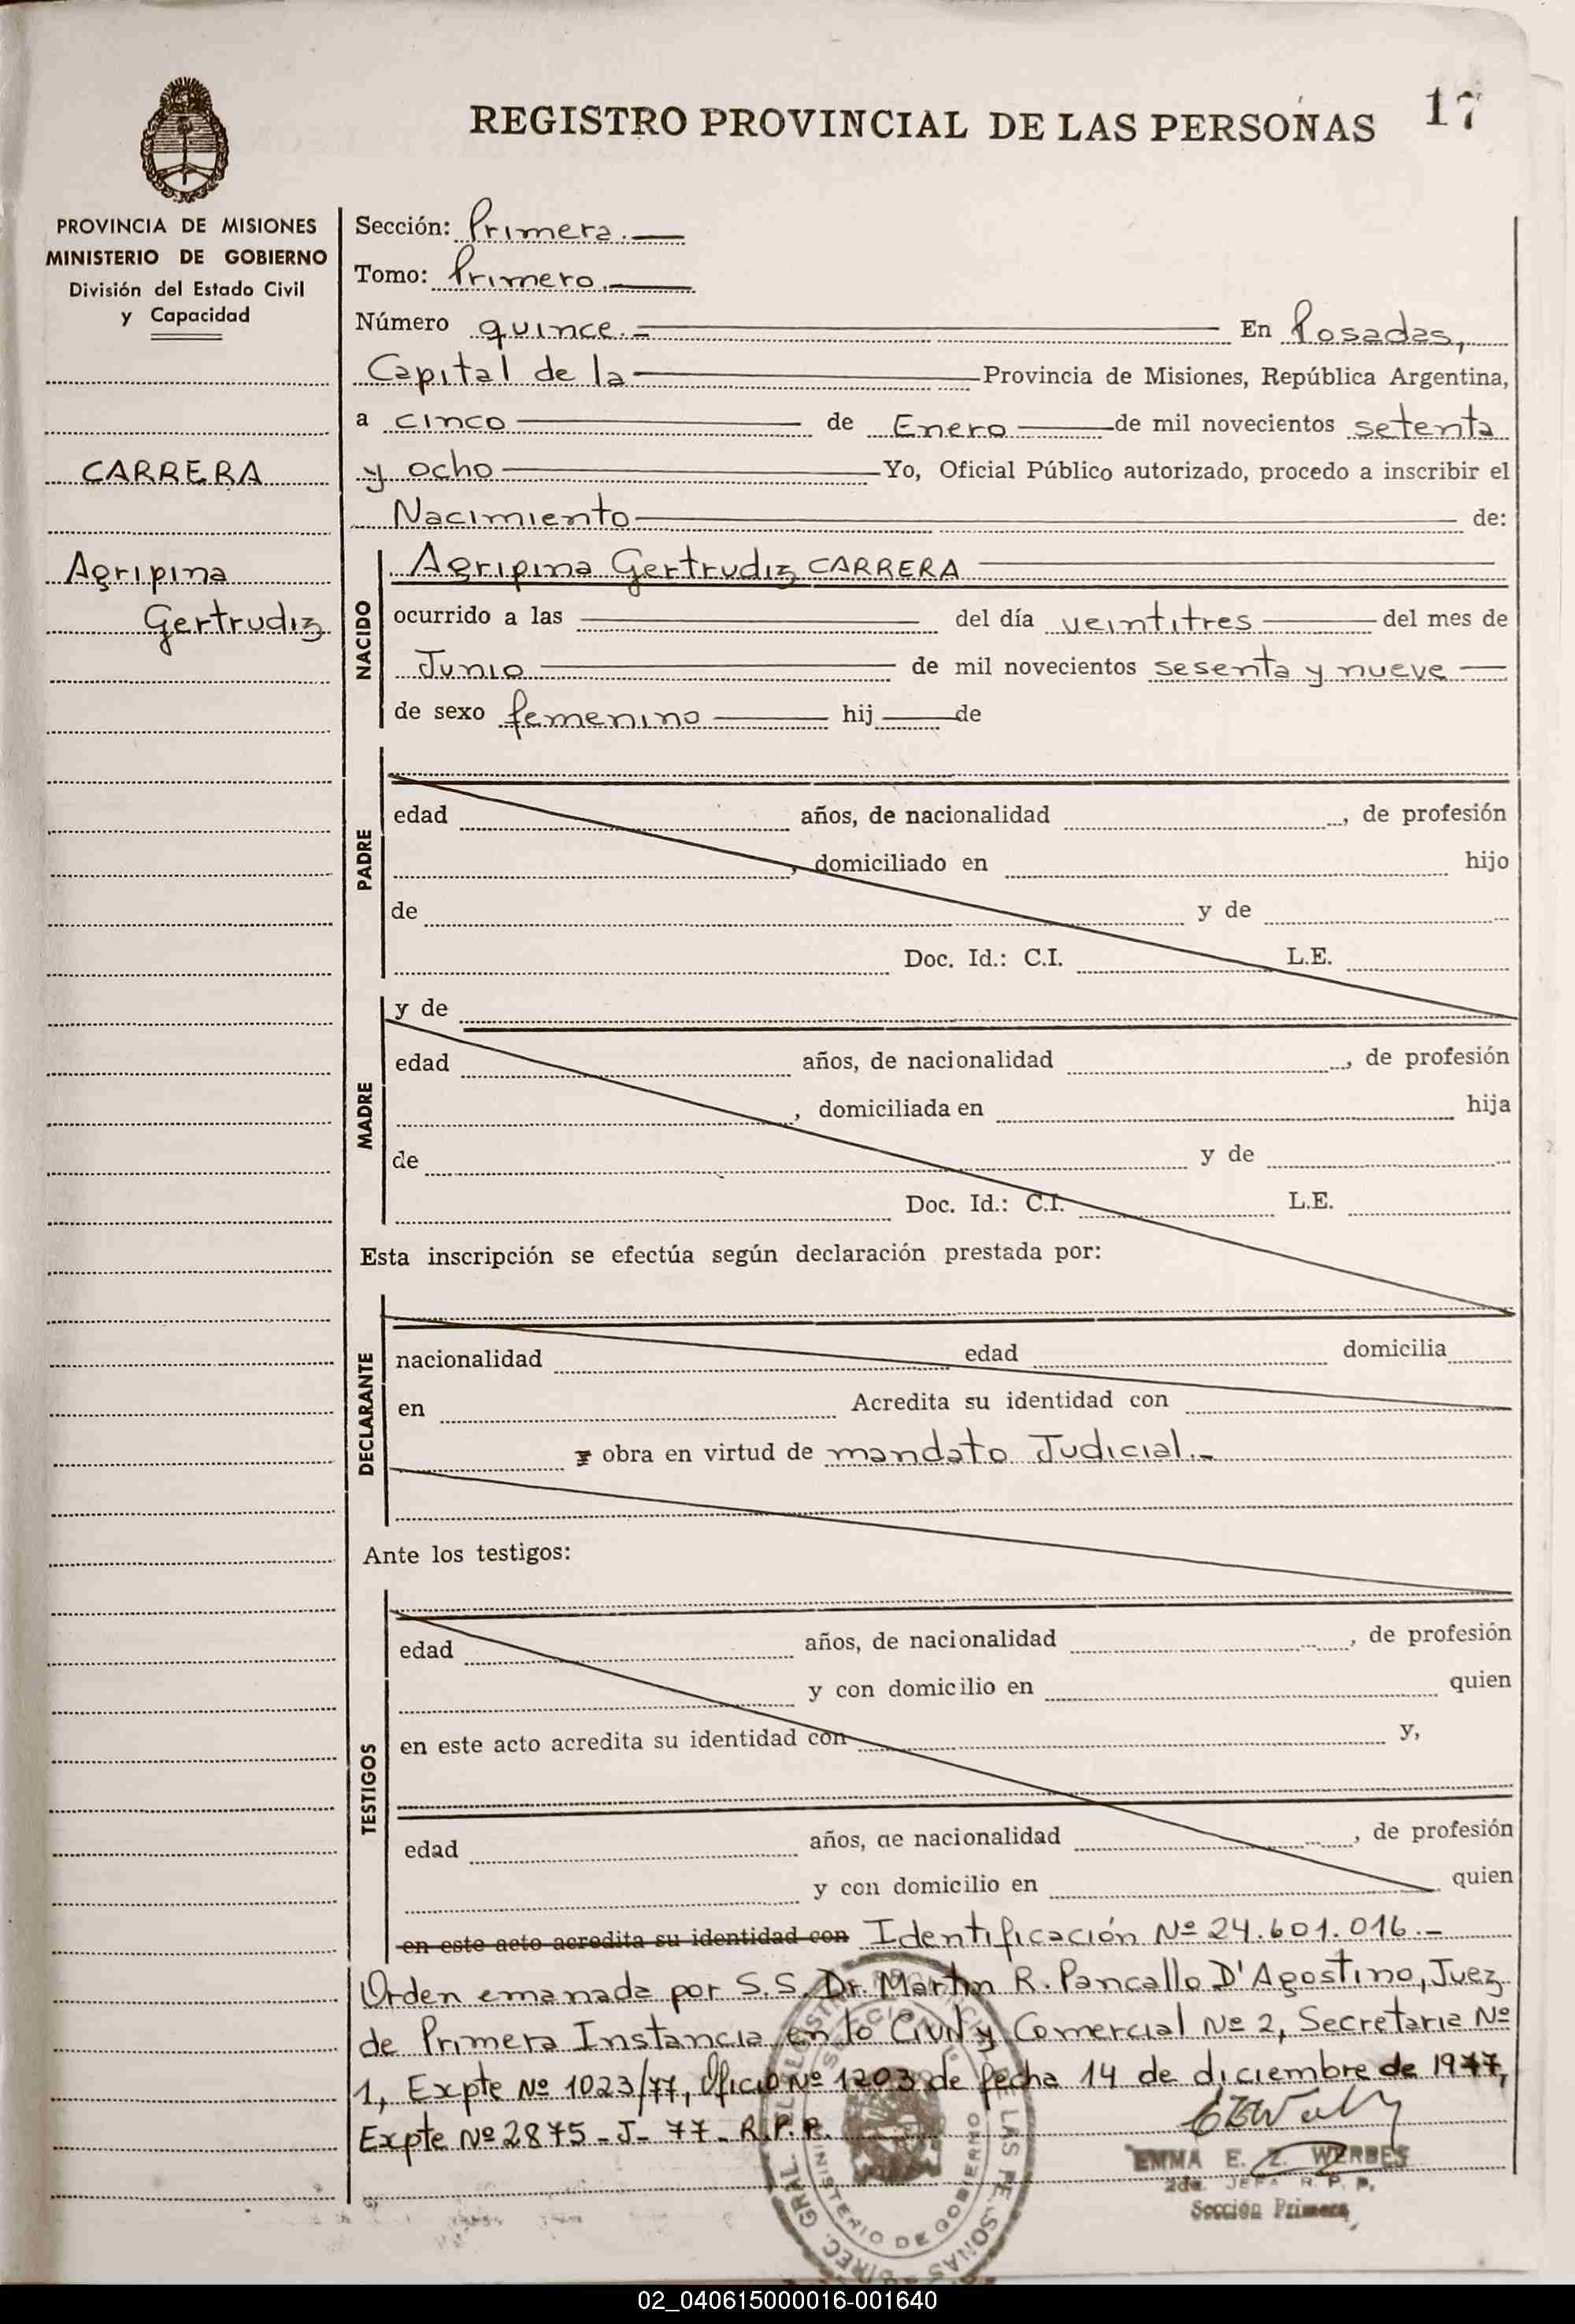 REGISTRO PROVINCIAL DE LAS PERSONAS 17
PROVINCIA DE MISIONES
MINISTERIO DE GOBIERNO
División del Estado Civil
y Capacidad
CARRERA
Agripina
Gertrudiz
Sección: Primera.
Tomo: Primero.
Número quince.- En Posadas,
Capital de la Provincia de Misiones, República Argentina,
a cinco de Enero de mil novecientos setenta
y ocho Yo, Oficial Público autorizado, procedo a inscribir el
Nacimiento de:
NACIDO
Agripina Gertrudiz CARRERA
ocurrido a las del día veintitres del mes de
Junio de mil novecientos sesenta y nueve
de sexo femenino hij de
PADRE
edad años, de nacionalidad , de profesión
, domiciliado en hijo
de y de
Doc. Id.: C.I. L.E.
MADRE
y de
edad años, de nacionalidad , de profesión
, domiciliada en hija
de y de
Doc. Id.: C.I. L.E.
Esta inscripción se efectúa según declaración prestada por:
DECLARANTE
nacionalidad edad domicilia
en Acredita su identidad con
y obra en virtud de mandato Judicial.-
Ante los testigos:
TESTIGOS
edad años, de nacionalidad , de profesión
y con domicilio en quien
en este acto acredita su identidad con y,
edad años, de nacionalidad , de profesión
y con domicilio en quien
en este acto acredita su identidad con Identificación Nº 24.601.016.-
Orden emanada por S.S. Dr. Martín R. Pancallo D'Agostino, Juez
de Primera Instancia en lo Civil y Comercial Nº 2, Secretaria Nº
1, Expte Nº 1023/77, Oficio Nº 1203 de fecha 14 de diciembre de 1977,
Expte Nº 2875-J-77-R.P.P.
EMMA E. Z. WERBES
2da. JEFA R. P. P.
Sección Primera
MINISTERIO DE GOBIERNO
02_040615000016-001640